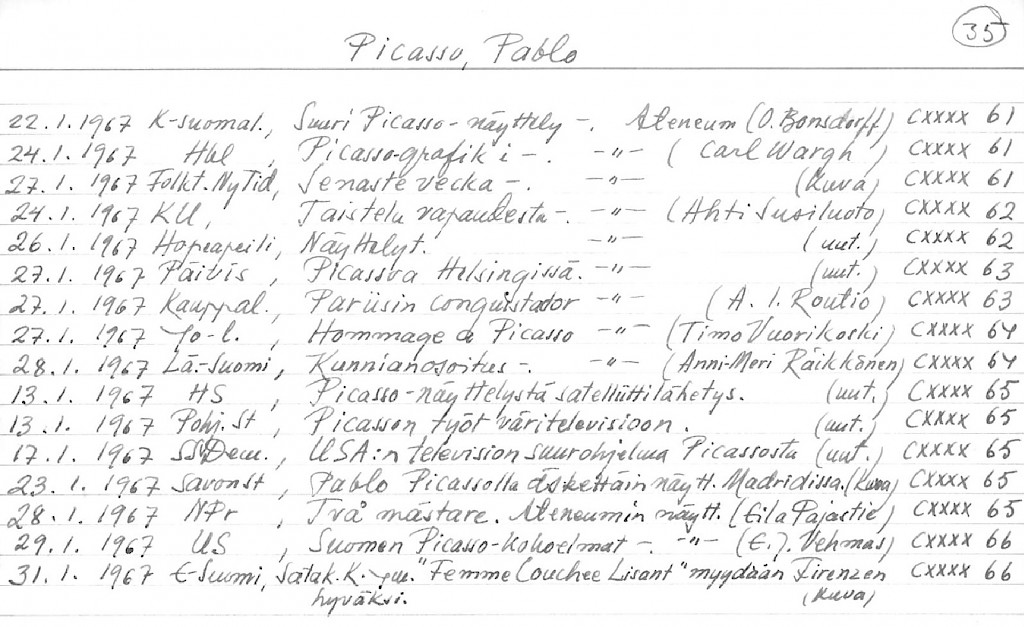 35
Picasso, Pablo
22.1.1967 K-suomal., Suuri Picasso-näyttely -. Ateneum (O. Bonsdorff) CXXXX 61
24.1.1967 Hbl, Picasso-grafik i -. -"- (Carl Wargh) CXXXX 61
27.1.1967 Folkt. Ny Tid, Senaste vecka -. -"- (Kuva) CXXXX 61
24.1.1967 KU, Taistelu vapaudesta -. -"- (Ahti Susiluoto) CXXXX 62
26.1.1967 Hopeapeili, Näyttelyt. -"- (uut.) CXXXX 62
27.1.1967 Päiväs, Picassoa Helsingissä. -"- (uut.) CXXXX 63
27.1.1967 Kauppal., Pariisin conquistador -"- (A. I. Routio) CXXXX 63
27.1.1967 Yo-l., Hommage a Picasso -"- (Timo Vuorikoski) CXXXX 64
28.1.1967 Lä.-Suomi, Kunnianosoitus -. -"- (Anni-Meri Räikkönen) CXXXX 64
13.1.1967 HS, Picasso-näyttelystä satelliittilähetys. (uut.) CXXXX 65
13.1.1967 Pohj. St, Picasson työt väritelevisioon. (uut.) CXXXX 65
17.1.1967 SSDem., USA:n television suurohjelma Picassosta (uut.) CXXXX 65
23.1.1967 Savonst, Pablo Picassolla äskettäin näytt. Madridissa. (Kuva) CXXXX 65
28.1.1967 NPr, Två mästare. Ateneumin näytt. (Eila Pajastie) CXXXX 65
29.1.1967 US, Suomen Picasso-kokoelmat -. -"- (E. J. Vehmas) CXXXX 66
31.1.1967 E-Suomi, Satak. K. "Femme Couchee Lisant" myydään Firenzen CXXXX 66
hyväksi. (Kuva)